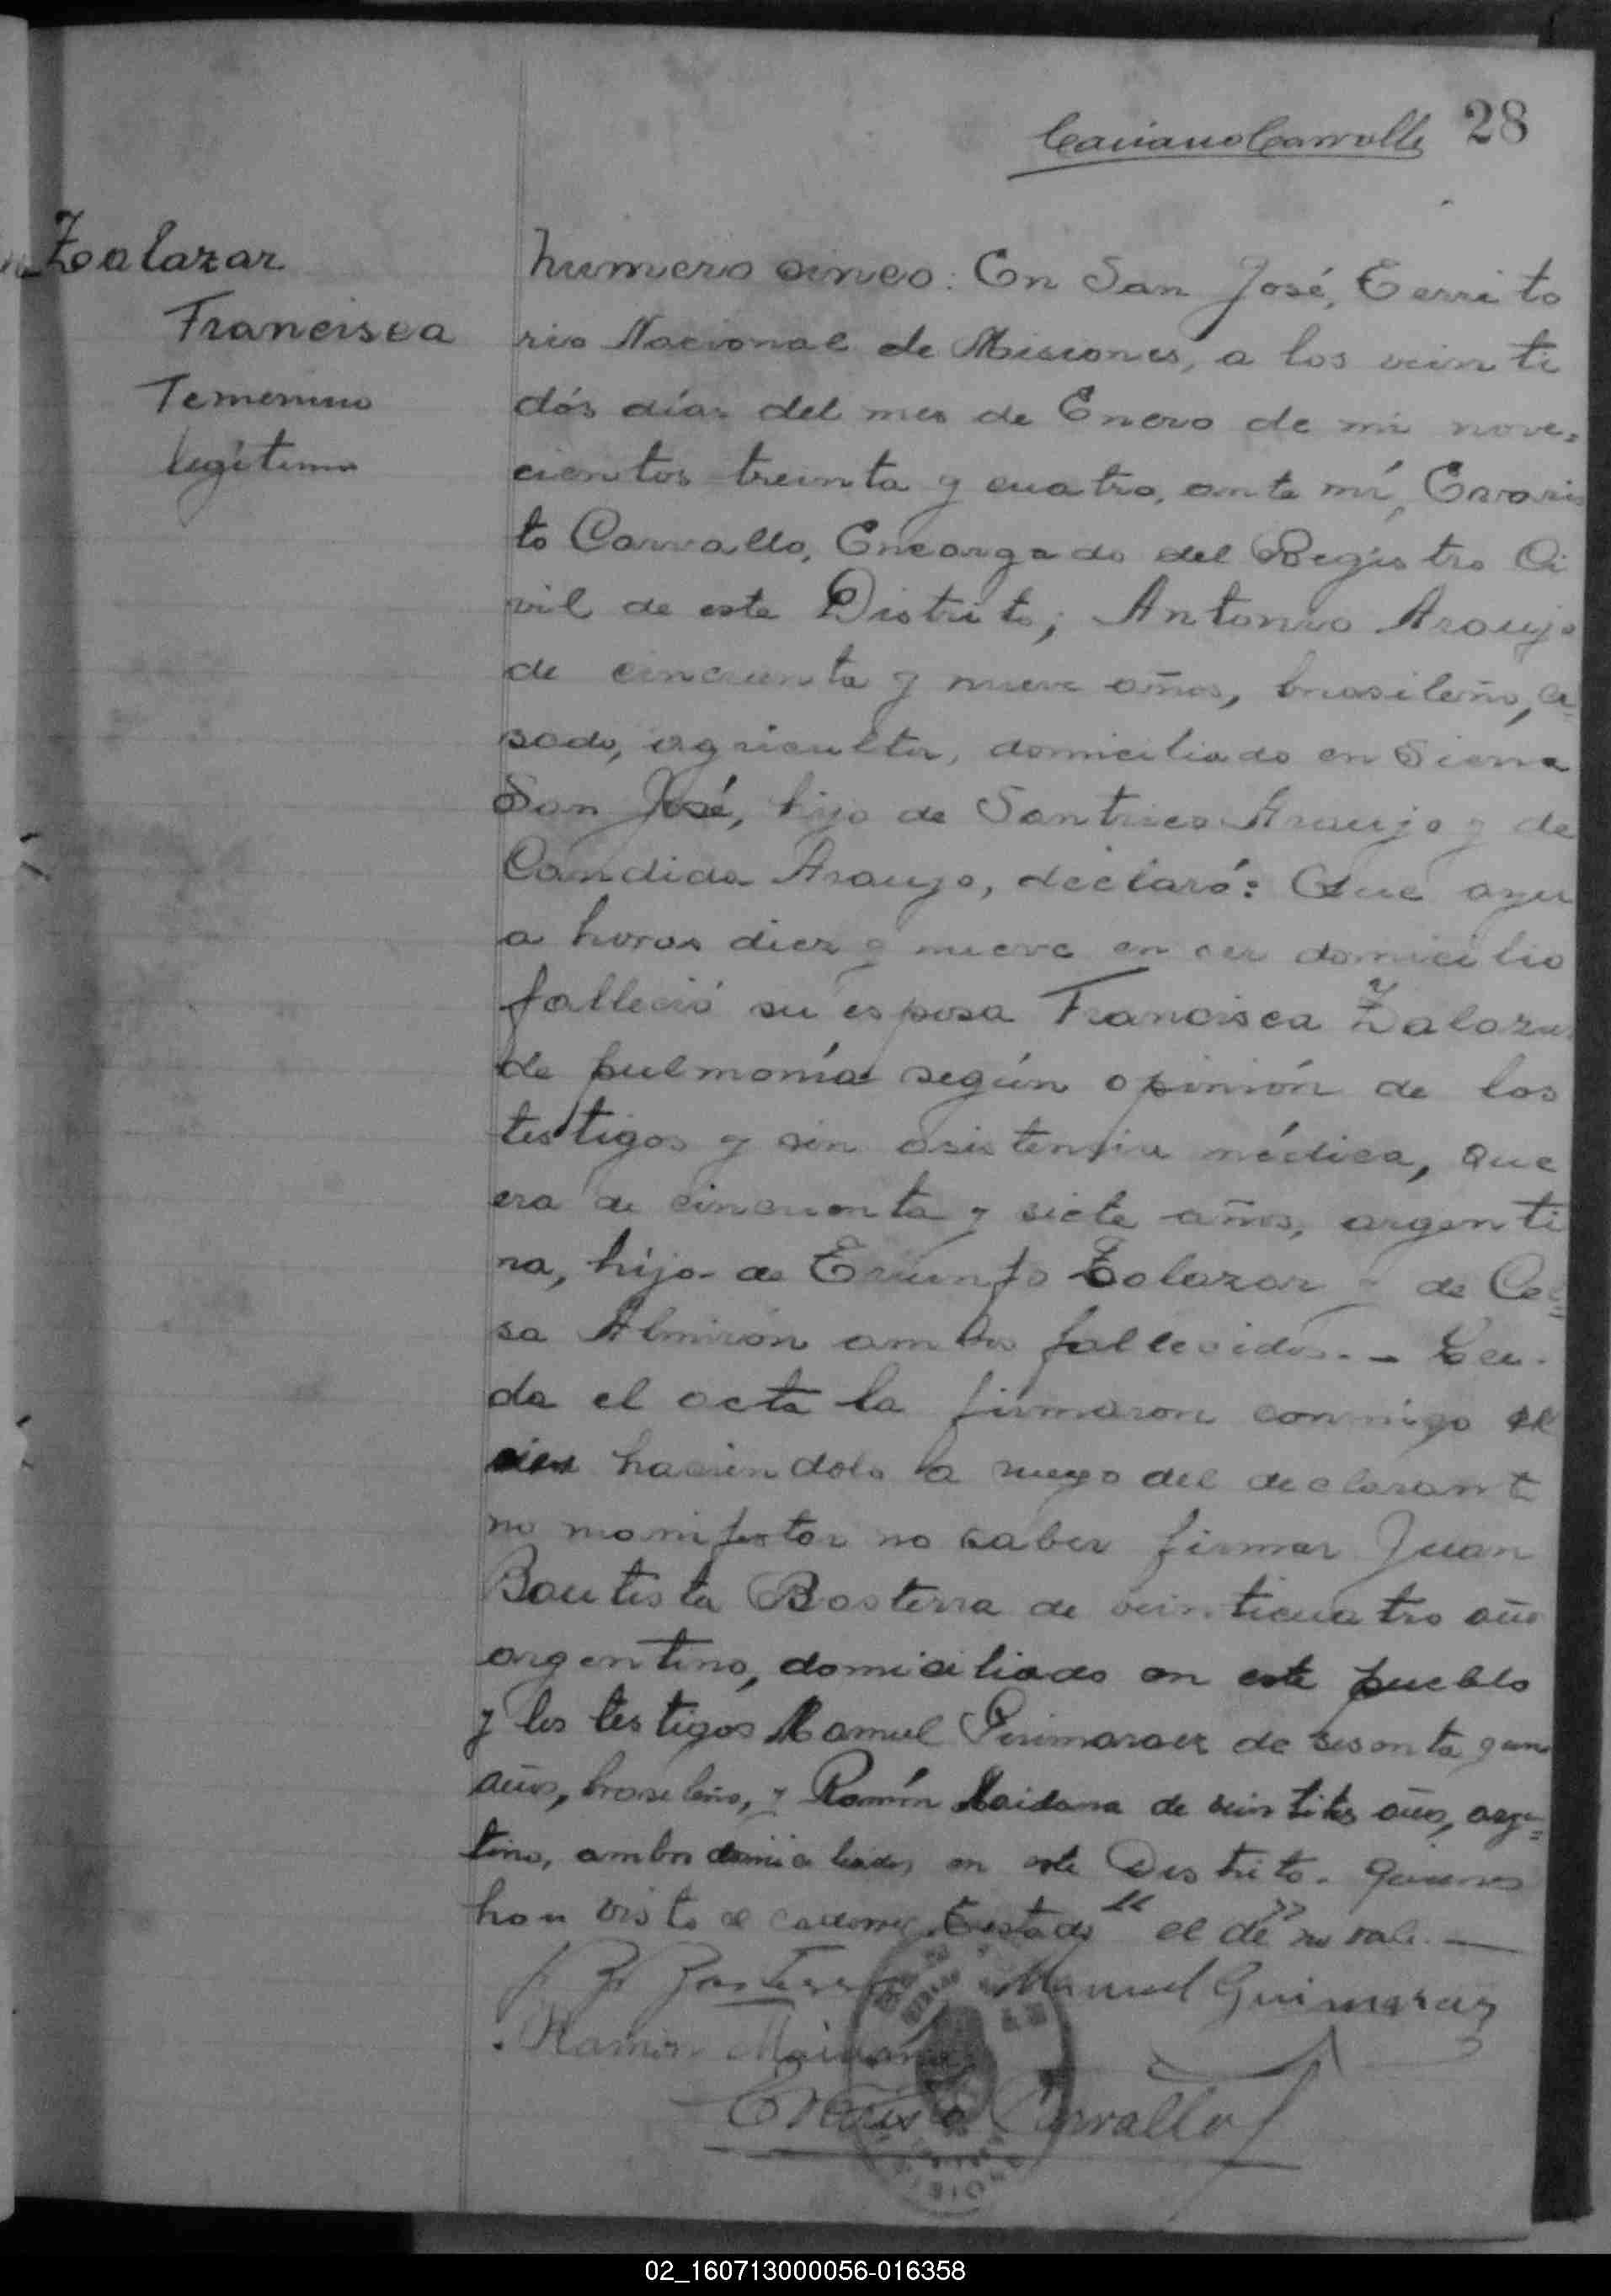 Carvallo 28
Zalazar
Francisca
Femenino
legítima
Numero cinco: En San José, Territo
rio Nacional de Misiones, a los veinti
dós días del mes de Enero de mil nove=
cientos treinta y cuatro, ante mí, Evaris
to Carvallo, Encargado del Registro Ci
vil de este Distrito; Antonio Araujo
de cincuenta y nueve años, brasileño, ca=
sado, agricultor, domiciliado en Sierra
San José, hijo de Araujo y de
Candida Araujo, declaró: Que ayer
a horas diez y nueve en su domicilio
falleció su esposa Francisca Zalazar
de pulmonía según opinión de los
testigos y sin asistencia médica, que
era de cincuenta y siete años, argenti
na, hija de Triunfo Zalazar y de Cel=
sa Almirón ambos fallecidos. - Lei-
da el acta la firmaron conmigo
haciendolo a ruego del declarante
no manifestar no saber firmar Juan
Bautista Basterra de veinticuatro años
argentino, domiciliado en este pueblo
y los testigos Manuel Guimaraez de sesenta y un
años, brasileño, y Ramón Maidana de años, argen=
tino, ambos domiciliados en este Distrito. quienes
han visto el cadaver. Testado "el de" no vale. —
J. B. Basterra Manuel Guimaraez
Ramón Maidana
Evaristo Carvallo
02_160713000056-016358